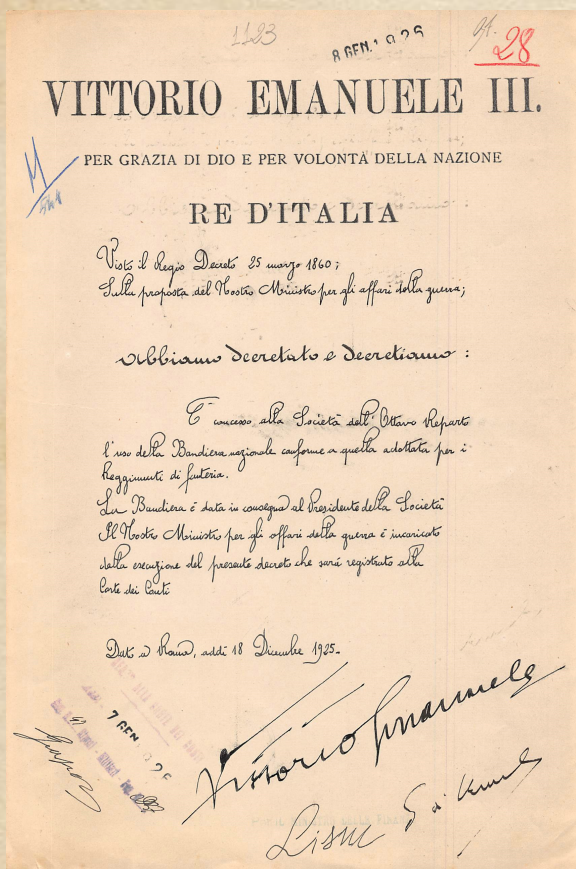 1123
8 GEN. 1926
28
VITTORIO EMANUELE III.
M
PER GRAZIA DI DIO E PER VOLONTÀ DELLA NAZIONE
RE D'ITALIA
Visto il Regio Decreto 25 marzo 1860;
Sulla proposta del Nostro Ministro per gli affari della guerra;
abbiamo decretato e decretiamo:
E' concesso alla Società dell'Ottavo Reparto
l'uso della Bandiera nazionale conforme a quella adottata per i
Reggimenti di fanteria.
La Bandiera è data in consegna al Presidente della Società
Il Nostro Ministro per gli affari della guerra è incaricato
della esecuzione del presente decreto che sarà registrato alla
Corte dei Conti
Dato a Roma, addì 18 Dicembre 1925-
7 GEN 1926
Vittorio Emanuele